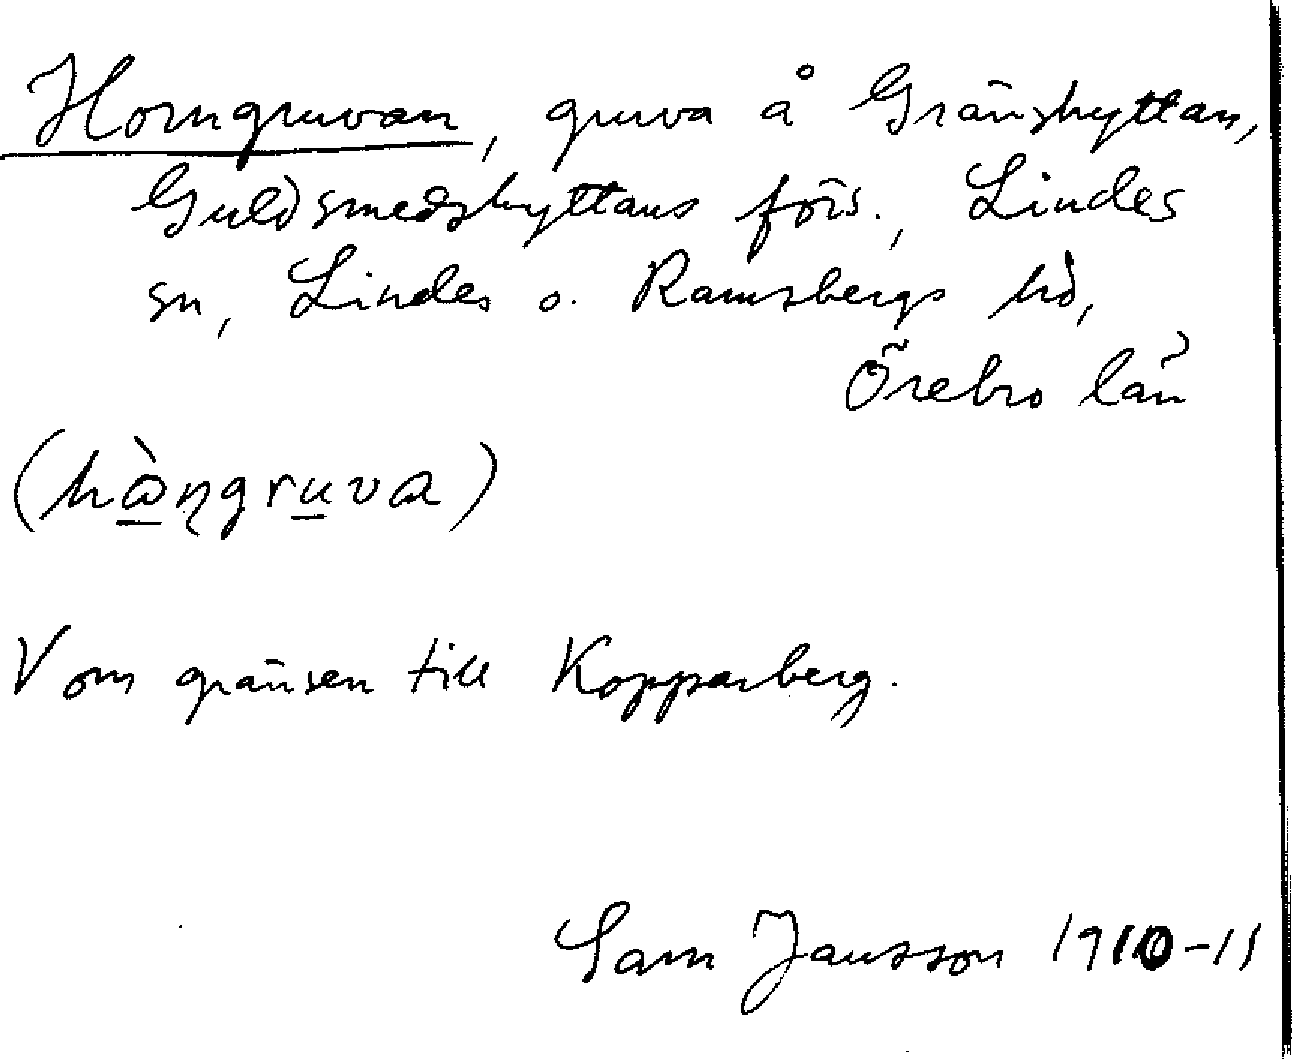 Horngruvan, gruva å Gränshyttan,
Guldsmedshyttans förs., Lindes
sn, Lindes o. Ramsbergs hd,
Örebro län
(hɷ̀ŋgruva)
V om gränsen till Kopparberg.
Sam Jansson 1910-11